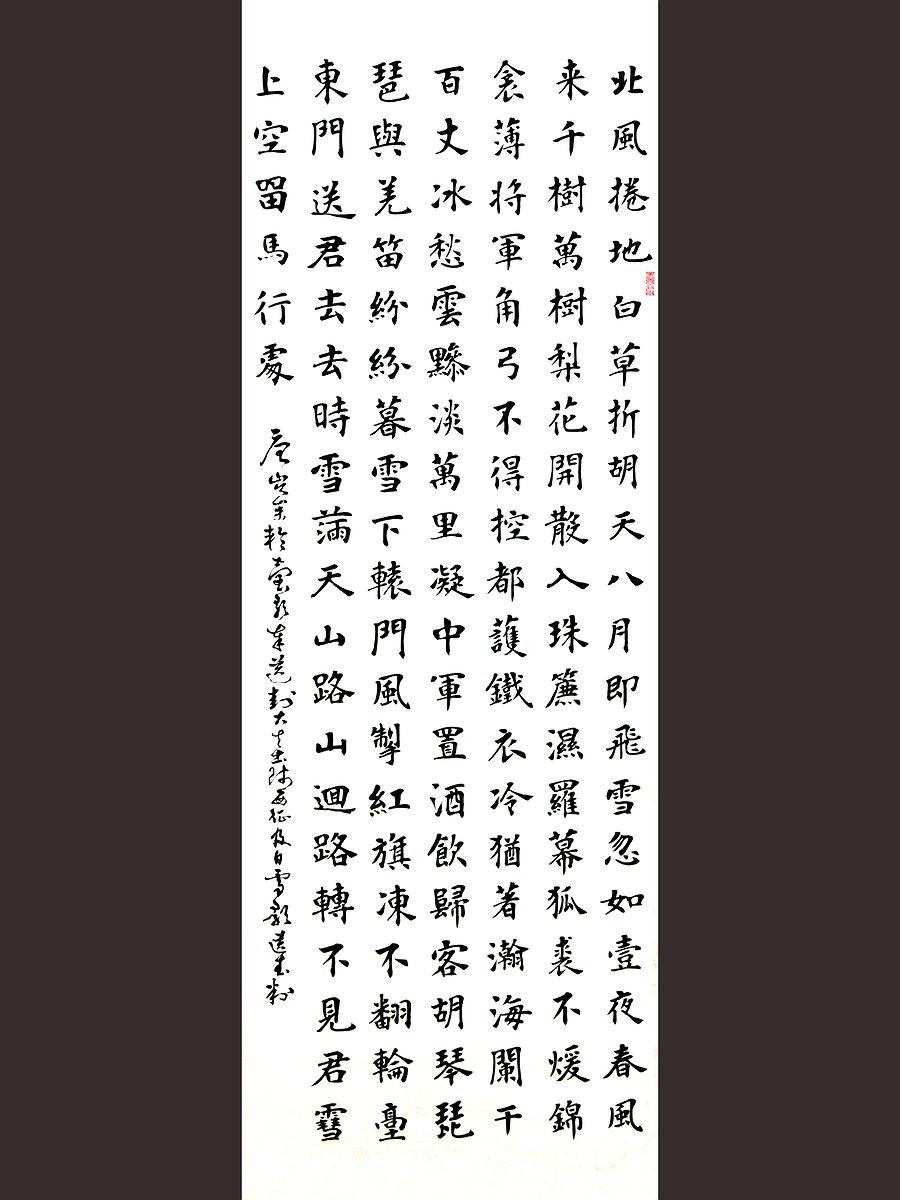 北風捲地白草折胡天八月即飛雪忽如壹夜春風
来千樹萬樹梨花開散入珠簾濕羅幕狐裘不煖錦
衾薄将軍角弓不得控都護鐵衣冷猶著瀚海闌干
百丈冰愁雲黲淡萬里凝中軍置酒飲歸客胡琴琵
琶與羌笛紛紛暮雪下轅門風掣紅旗凍不翻輪臺
東門送君去去時雪滿天山路山迴路轉不見君雪
上空留馬行處
唐岑參輪臺歌奉送封大夫出師西征及白雪歌